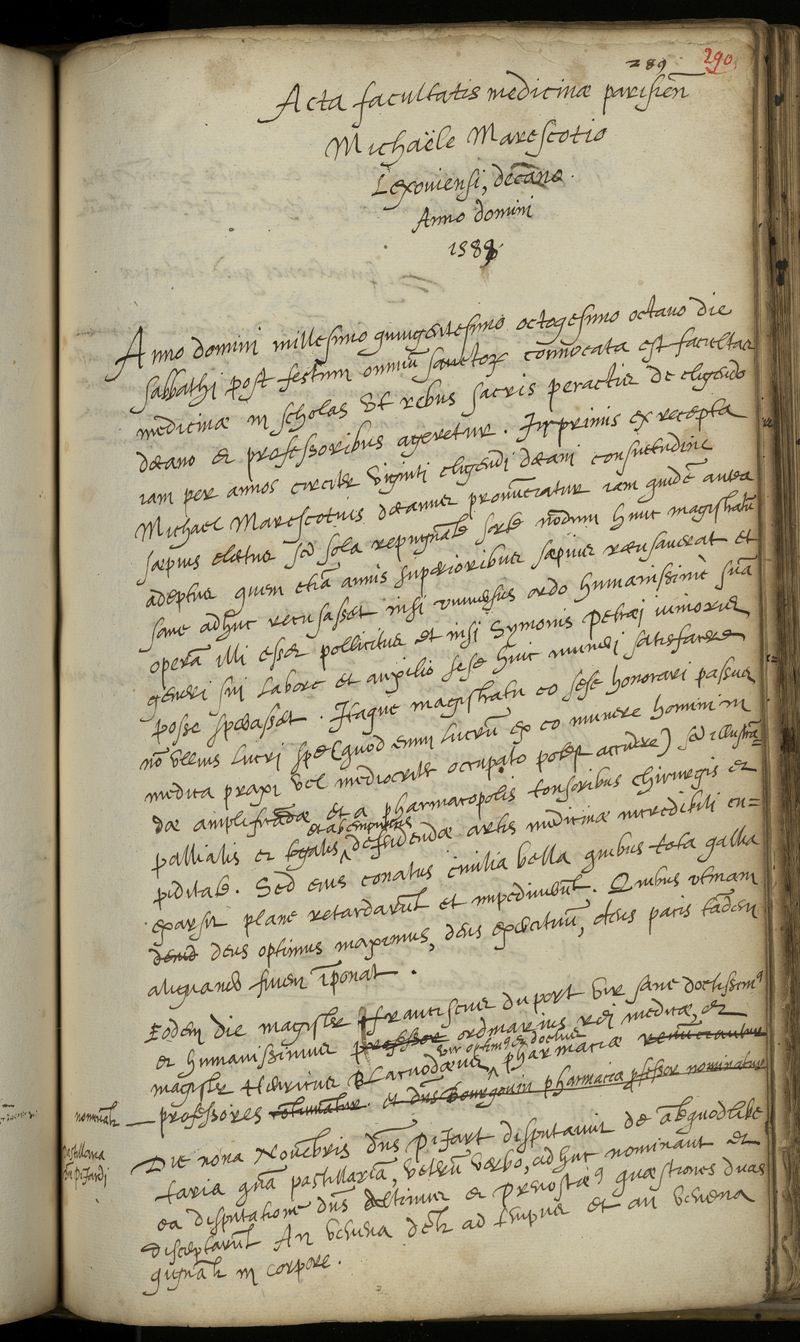 289
290
Acta facultatis medicinæ parisien̄
Michaële Marescotio
Lexoviensi, decano.
Anno domini
1588
Anno domini millesimo quingentesimo octogesimo octauo die
sabbathi post festum omniū sanctor convocata est facultas
medicinæ in scholas vt rebus sacris peractis de eligendo
decano et professoribus ageretur. Inprimis ex recepta
iam per annos circiter viginti eligendi decani consuetudine
Michael Marescotius decanus pronūciatur iam quidē antea
sæpius electus sed sola repugnāte sorte nōdum hunc magistratū
adeptus quem etiā annis superioribus sæpius recusauerat et
sane adhuc recusasset nisi vniuersus ordo humanissimè suā
operā illi esset pollicitus et nisi Symonis Petræi iunioris
generi sui labore et auxilio sese huic muneri satisfacere
posse sperasset. Itaque magistratu eo sese honorari passus
nō vllius lucri spe (quod enim lucrū ex eo munere homini in
medica praxi vel mediocriter occupato potest accidere) sed illustrā=
dæ amplificādæ et a pharmacopolis tonsoribus chirurgis et
et ab empiricis
pallialis et legalis defendendæ artis medicinæ incredibili cu=
piditate. Sed eius conatus ciuilia bella quibus tota gallia
exarsit plane retardarūt et impediuerūt. Quibus vtinam
deus optimus maximus, deus exercituū, deus pacis tādem
aliquando finem īponat.
Eodem die magister franciscus duport vir sane doctissim9
et humanissimus professor ordinarius rei medicæ, et
vir optim9 et doctus
magister Henricus Blacuodæus pharmaciæ renūciantur
nominātr professores et dn̄s Bourgouin pharmacia pfessor nominatur
Die nona Nouēbris dn̄s Pijart disputauit de a quodlibe
pastillaria
dn̄i Pijardi
taria quā pastillariā, veterū verbo, adhuc nominant et
ea disputatione dn̄s et Preuostæ9 quæstiones duas
disceptarūt An venena dētr ad tempus et an venena
gignātr in corpore.